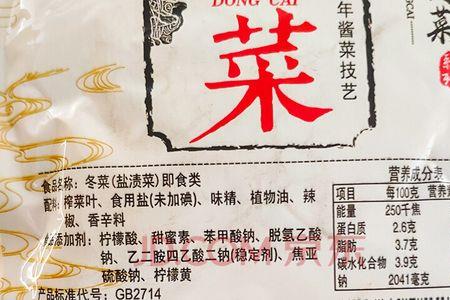 DONG CAI
菜
年酱菜技艺
CAI
菜
食品名称：冬菜(盐渍菜)即食类
配料：榨菜叶、食用盐(未加碘)、味精、植物油、辣
椒、香辛料
食品添加剂：柠檬酸、甜蜜素、苯甲酸钠、脱氢乙酸
钠、乙二胺四乙酸二钠(稳定剂)、焦亚
硫酸钠、柠檬黄
产品标准代号：GB2714
营养成分表
项目 每100克 营养
能量 250千焦
蛋白质 2.6克
脂肪 3.7克
碳水化合物 3.9克
钠 2041毫克
JD.COM 京东